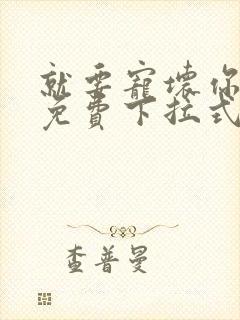 就要寵壞你
免費下拉式
查普曼